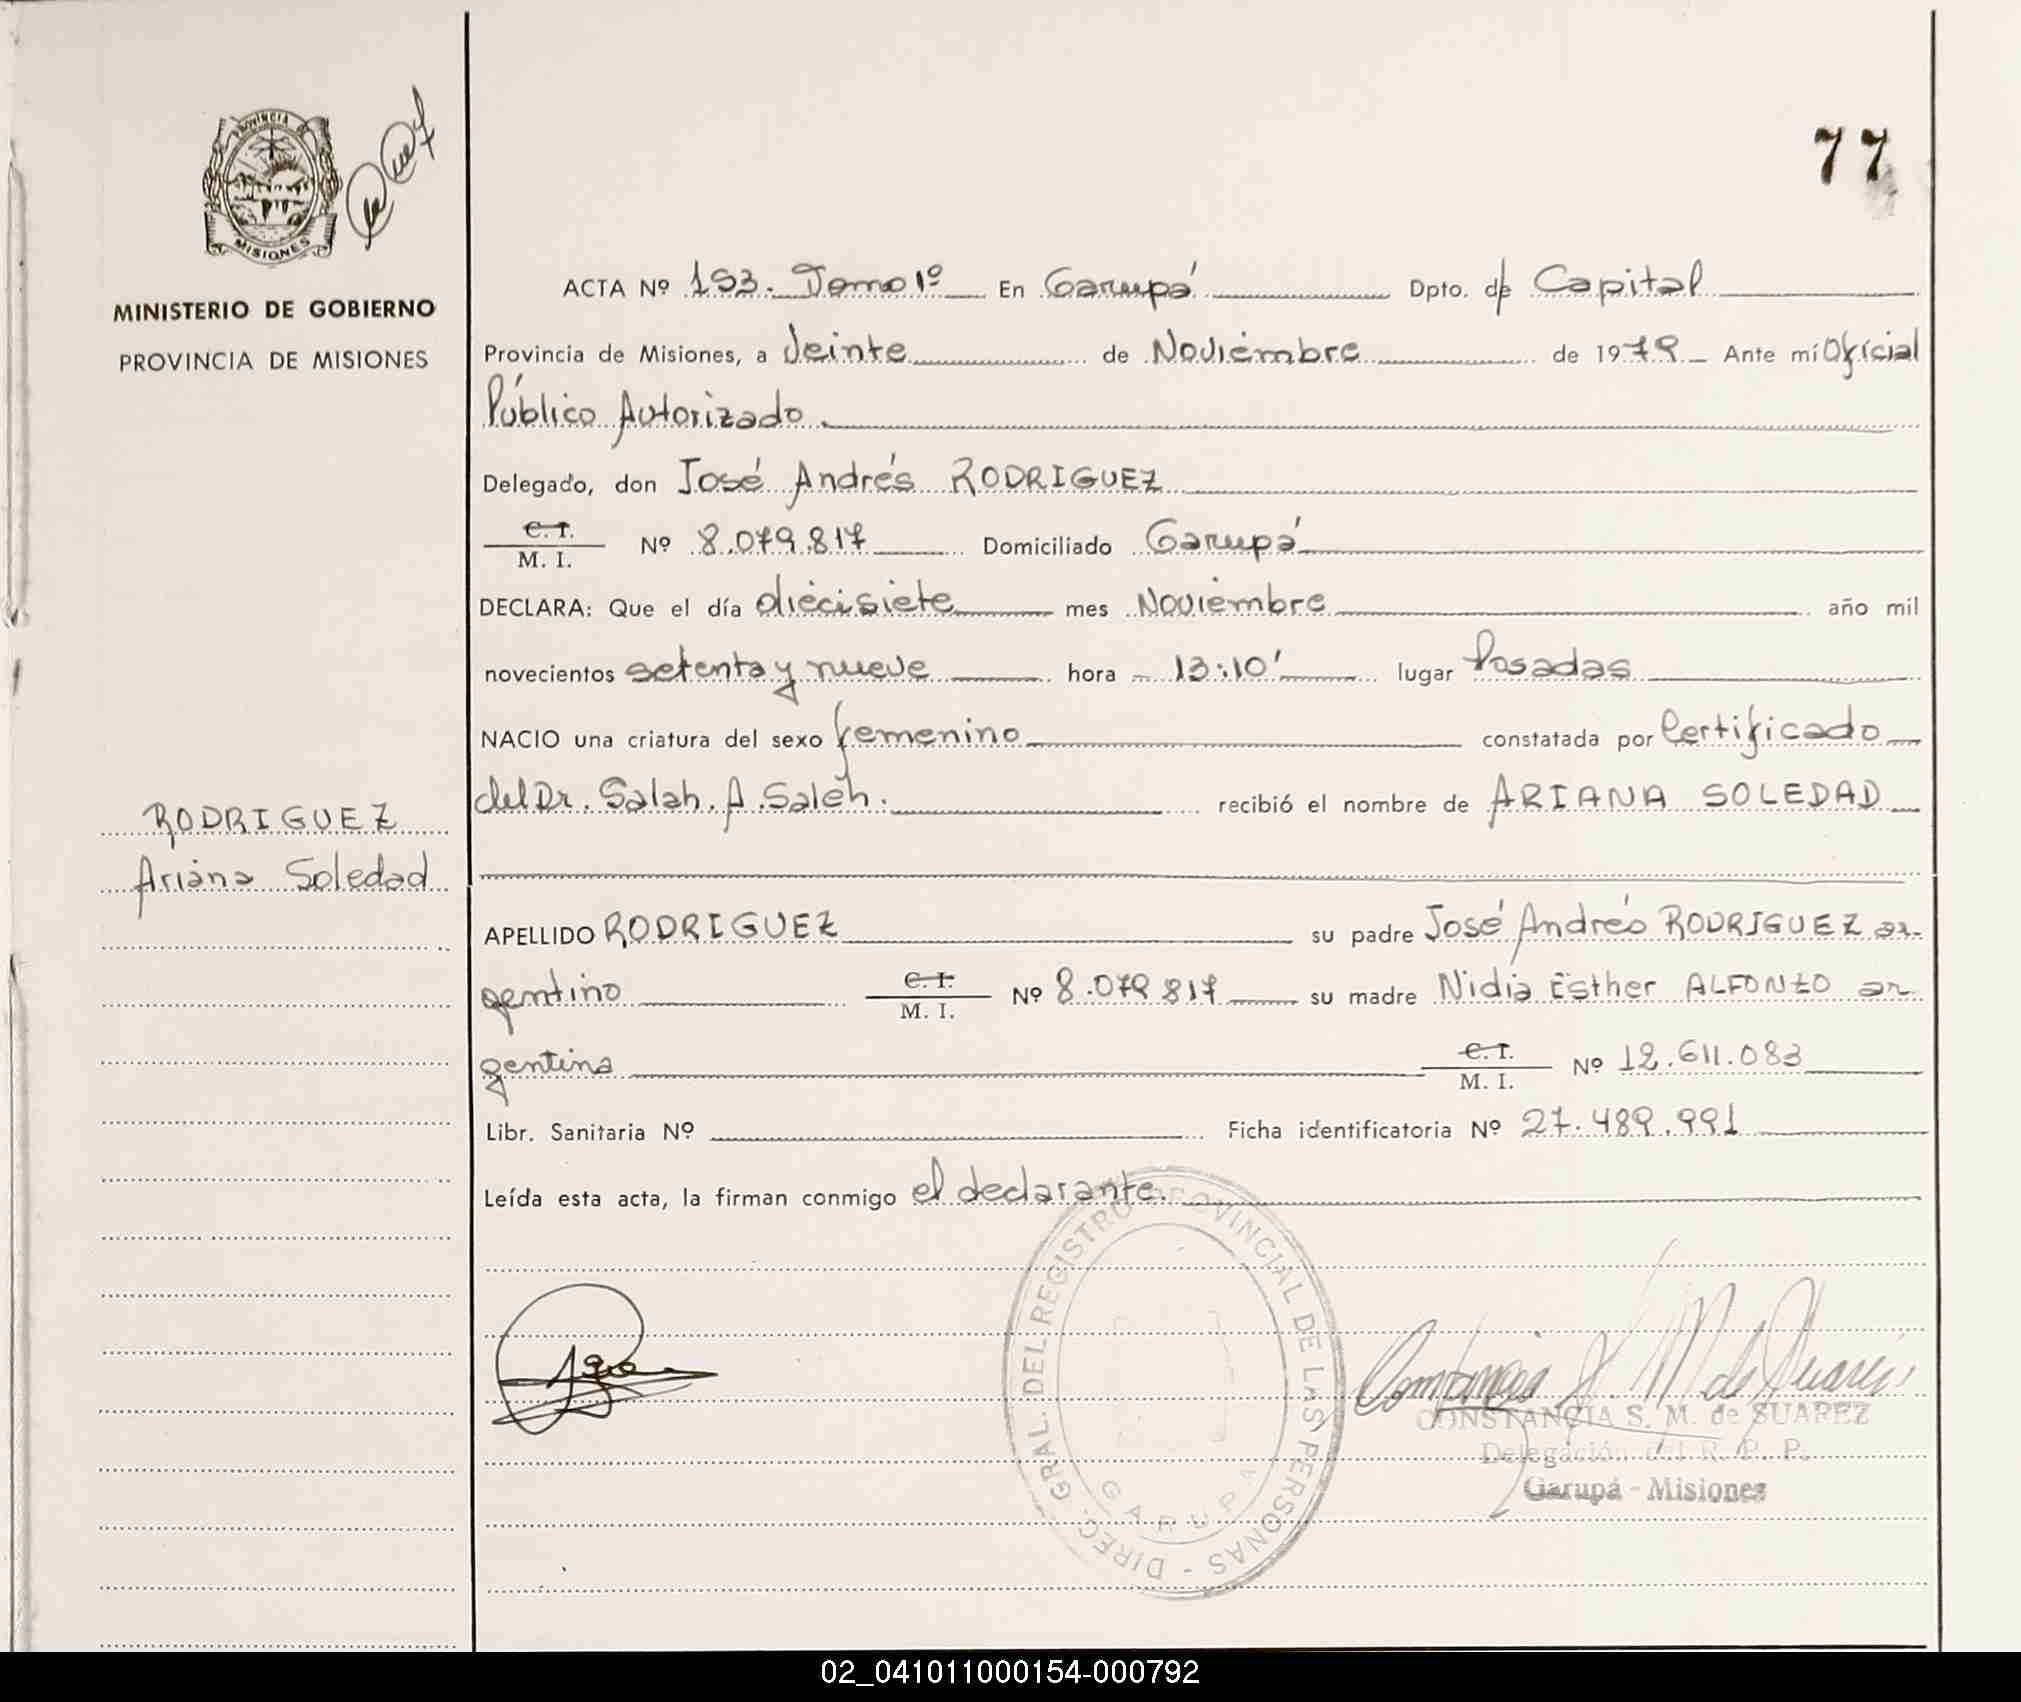 77
PROVINCIA DE
MISIONES
MINISTERIO DE GOBIERNO
PROVINCIA DE MISIONES
RODRIGUEZ
Ariana Soledad
ACTA Nº 193. Tomo 1º En Garupá Dpto. de Capital
Provincia de Misiones, a Veinte de Noviembre de 1979 Ante mí Oficial
Público Autorizado
Delegado, don José Andrés RODRIGUEZ
C. I.
M. I. Nº 8.079.817 Domiciliado Garupá
DECLARA: Que el día diecisiete mes Noviembre año mil
novecientos setenta y nueve hora 13:10' lugar Posadas
NACIO una criatura del sexo femenino constatada por Certificado
del Dr. Salah. A. Saleh. recibió el nombre de ARIANA SOLEDAD
APELLIDO RODRIGUEZ su padre José Andrés RODRIGUEZ ar-
gentino C. I. M. I. Nº 8.079 817 su madre Nidia Esther ALFONZO ar
gentina C. I. M. I. Nº 12.611.083
Libr. Sanitaria Nº Ficha identificatoria Nº 27.489.991
Leída esta acta, la firman conmigo el declarante.
DIREC. GRAL. DEL REGISTRO PROVINCIAL DE LAS PERSONAS -
GARUPA
CONSTANCIA S. M. de SUAREZ
Delegación del R. P. P.
Garupá - Misiones
02_041011000154-000792